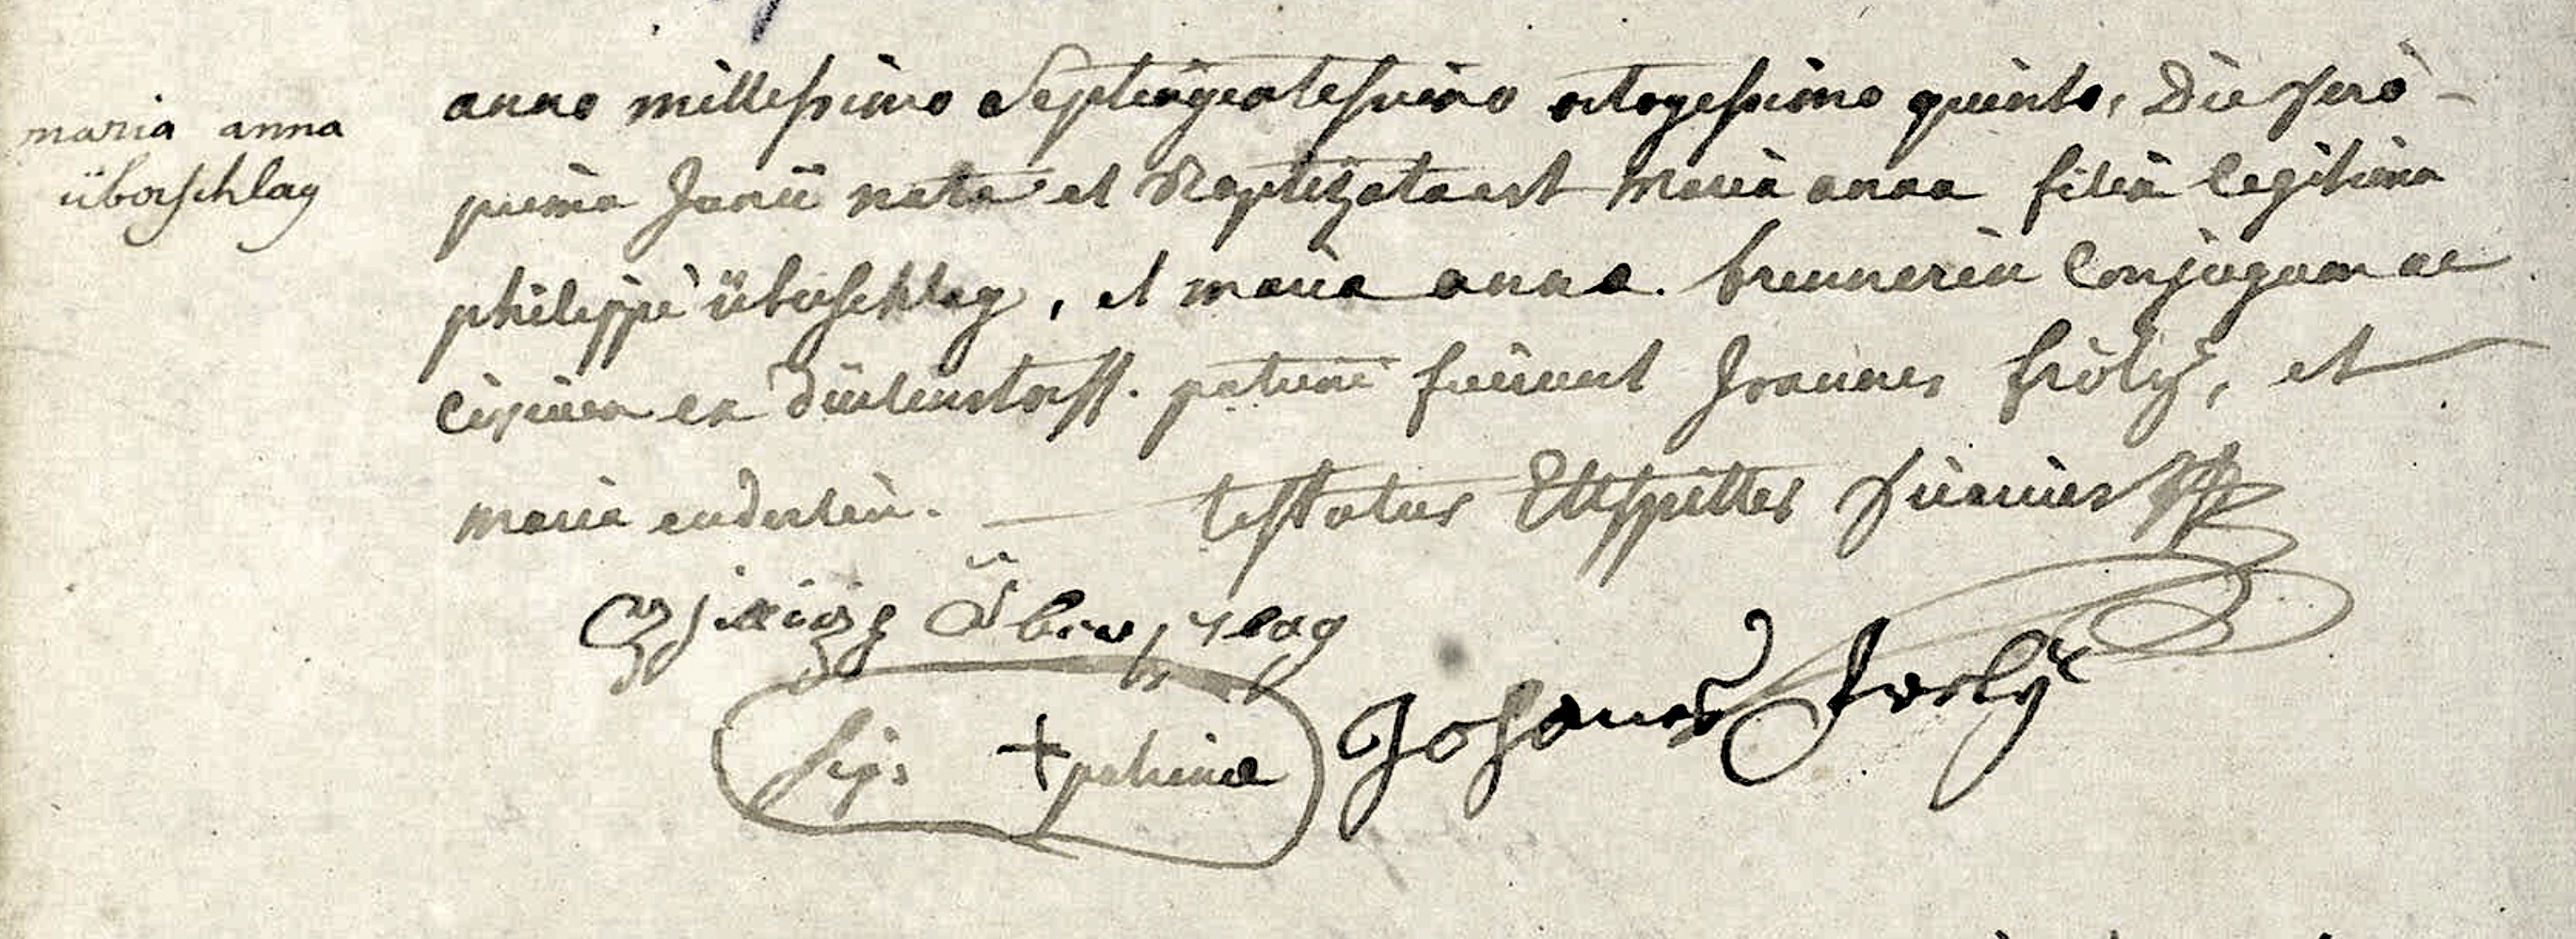 maria anna
überschlag
anno millessimo Septingentessimo octogessimo quinto, Die vero -
prima Junii nata et Baptizata est Maria anna filia legitima
philippi überschlag, et maria anna. brunnerin Conjugum ac
Civium ex Dürlinstorff. patrini fuerunt Joannes fröly, et
maria enderlin. — testatur Ettspiller Vicarius
Überschlag
sig. + patrinæ
Johannes Froly